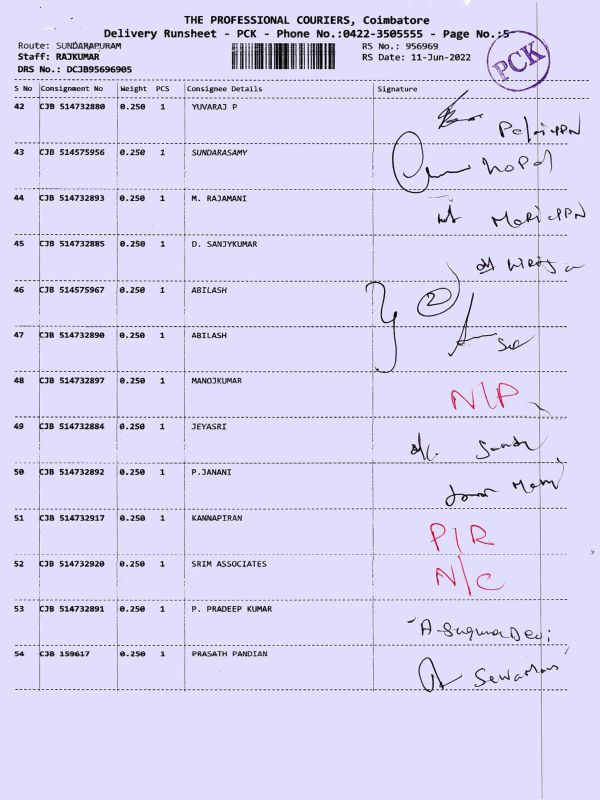 THE PROFESSIONAL COURIERS, Coimbatore
Delivery Runsheet - PCK - Phone No.:0422-3505555 - Page No.:5
Route: SUNDARAPURAM
RS No.: 956969
Staff: RAJKUMAR
RS Date: 11-Jun-2022
DRS No.: DCJB95696905
PCK
S No Consignment No Weight PCS Consignee Details Signature
42 CJB 514732880 0.250 1 YUVARAJ P
43 CJB 514575956 0.250 1 SUNDARASAMY
44 CJB 514732893 0.250 1 M. RAJAMANI
45 CJB 514732885 0.250 1 D. SANJYKUMAR
46 CJB 514575967 0.250 1 ABILASH 2
47 CJB 514732890 0.250 1 ABILASH
48 CJB 514732897 0.250 1 MANOJKUMAR N/P
49 CJB 514732884 0.250 1 JEYASRI
50 CJB 514732892 0.250 1 P.JANANI
51 CJB 514732917 0.250 1 KANNAPIRAN P/R
52 CJB 514732920 0.250 1 SRIM ASSOCIATES N/C
53 CJB 514732891 0.250 1 P. PRADEEP KUMAR
54 CJB 159617 0.250 1 PRASATH PANDIAN